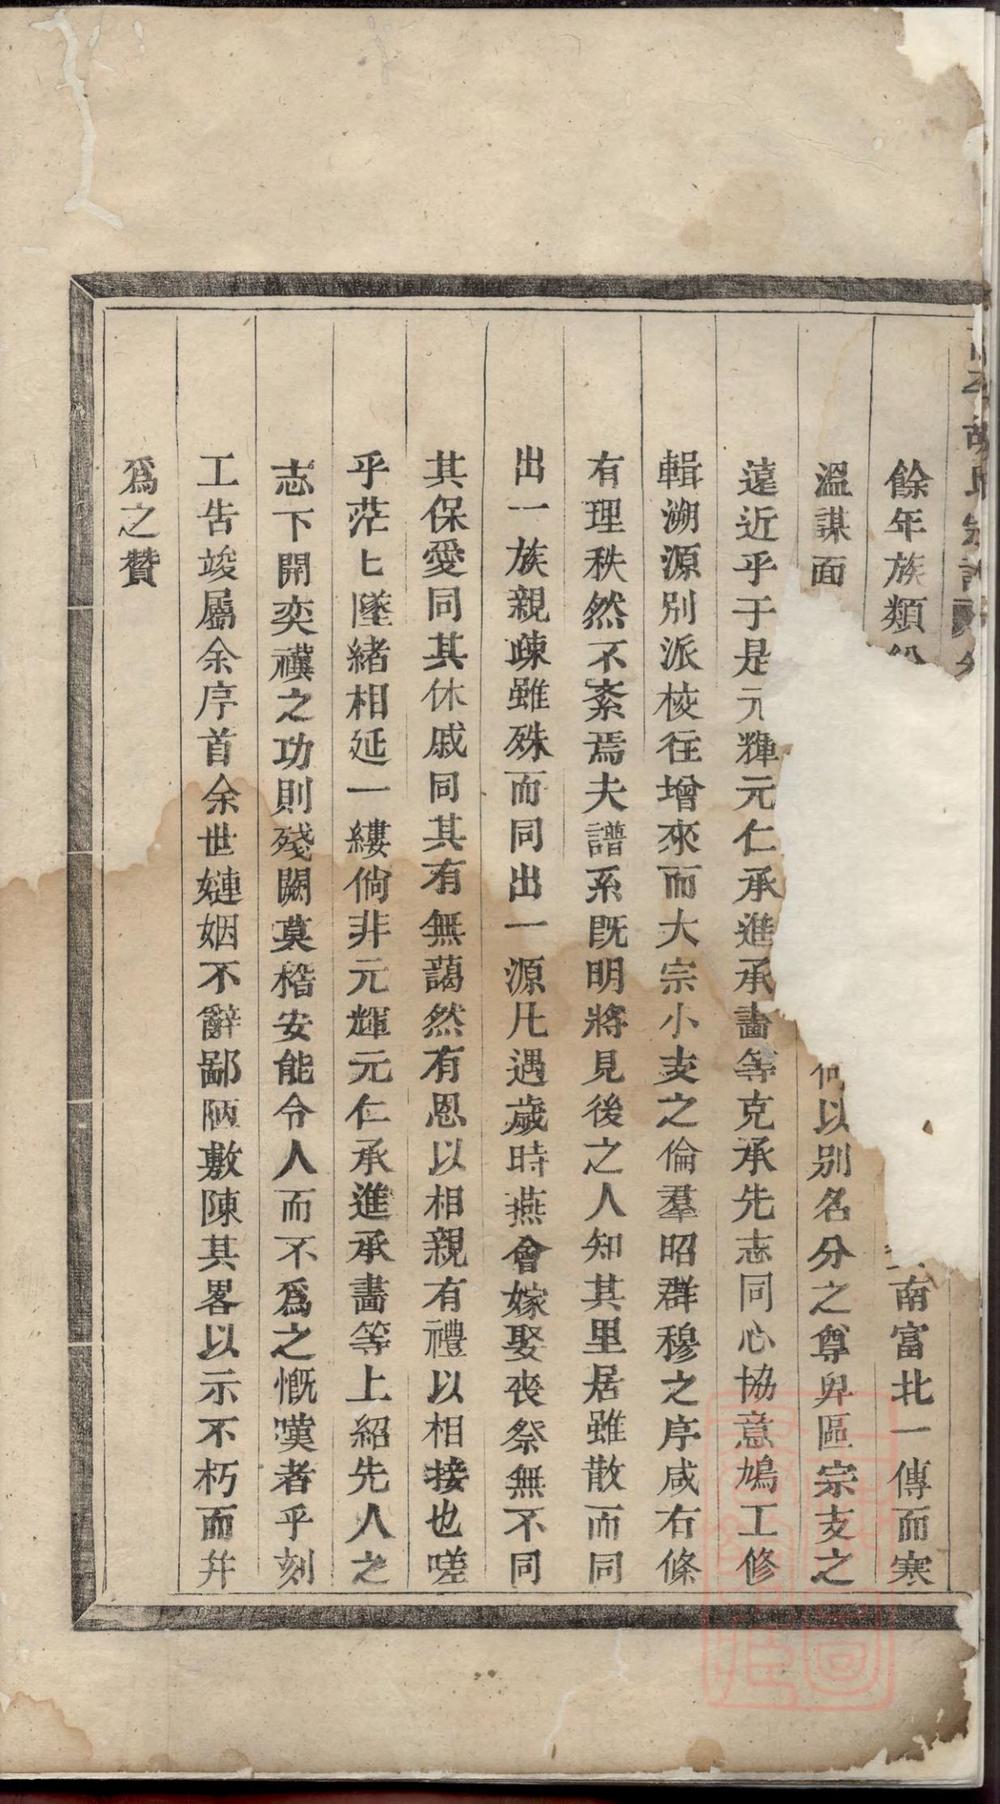 胡氏宗譜
餘年族類 南富北一傳而寒
溫謀面 以別名分之尊卑區宗支之
遠近乎于是元輝元仁承進承畵等克承先志同心協意鳩工修
輯溯源別派校徃增來而大宗小支之倫羣昭群穆之序咸右條
有理秩然不紊焉夫譜系既明將見後之人知其里居雖散而同
出一族親疎雖殊而同出一源凡遇歲時燕會嫁娶喪祭無不同
其保愛同其休戚同其有無藹然有恩以相親有禮以相接也嗟
乎茫匕墜緒相延一縷倘非元輝元仁承進承畵等上紹先人之
志下開奕禩之功則殘闕莫稽安能令人而不爲之慨嘆者乎刻
工告竣屬余序首余世嫤姻不辭鄙陋敷陳其畧以示不朽而幷
爲之贊